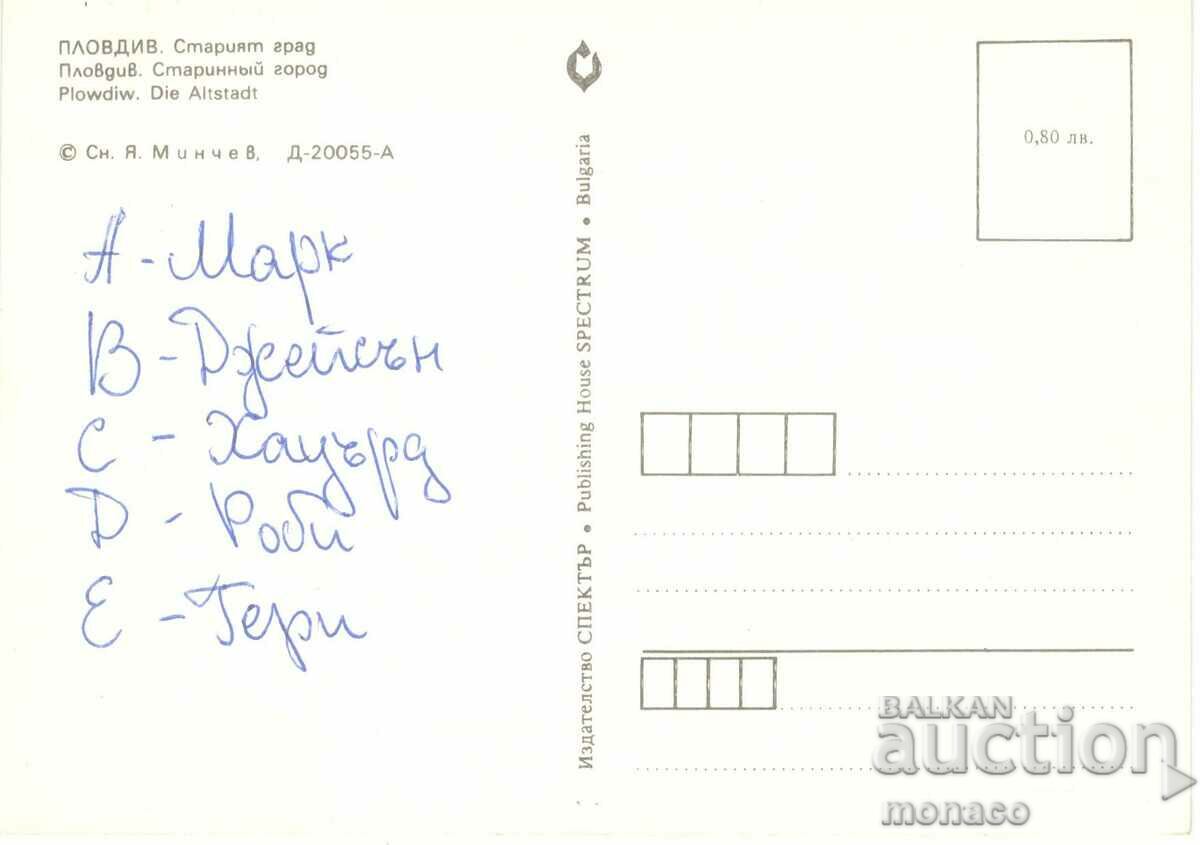 ПЛОВДИВ. Старият град
Пловдив. Старинный город
Plowdiw. Die Altstadt
© Сн. Я. Минчев, Д-20055-А
А - Марк
В - Джейсън
С - Хауърд
D - Роби
Е - Гери
Издателство СПЕКТЪР • Publishing House SPECTRUM • Bulgaria
0,80 лв.
BALKAN
auction
monaco